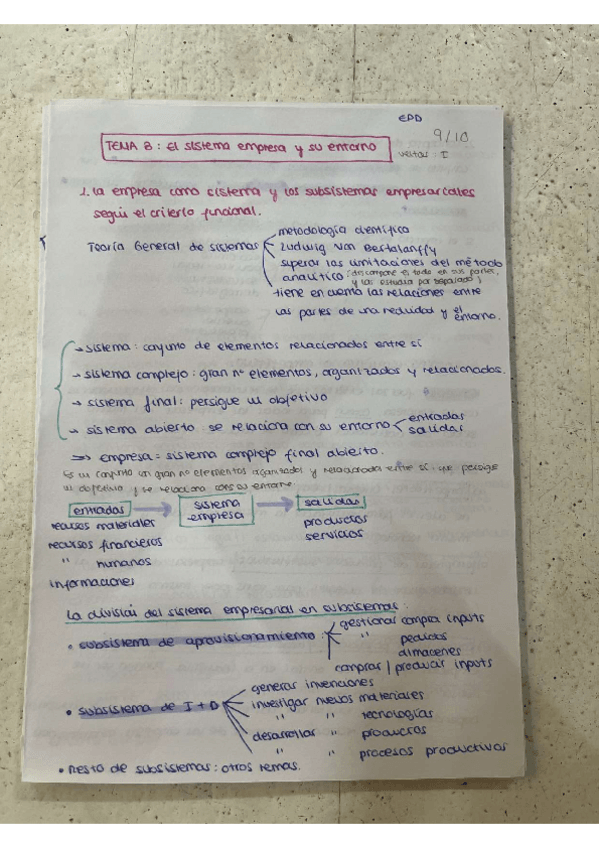 EDD
9/10
TEMA 8: El sistema empresa y su entorno
vueltas: I
1. La empresa como sistema y los subsistemas empresariales
según el criterio funcional.
Teoría General de sistemas
metodología científica
Ludwig Von Bertalanffy
superar las limitaciones del método
analítico (descompone el todo en sus partes,
y las estudia por separado)
tiene en cuenta las relaciones entre
las partes de una realidad y el
entorno.
→ sistema: conjunto de elementos relacionados entre sí
→ sistema complejo: gran nº elementos, organizados y relacionados.
→ sistema final: persigue un objetivo
→ sistema abierto: se relaciona con su entorno
entradas
salidas
=> empresa = sistema complejo final abierto.
Es un conjunto un gran nº elementos organizados y relacionados entre sí que persigue
un objetivo y se relaciona con su entorno
entradas → sistema empresa → salidas
recursos materiales
recursos financieros
" humanos
informaciones
productos
servicios
La división del sistema empresarial en subsistemas:
• subsistema de aprovisionamiento:
gestionar compra inputs
" pedidos
almacenes
comprar | producir inputs
• subsistema de I+D
generar invenciones
investigar nuevos materiales
" " tecnologías
desarrollar " productos
" " procesos productivos
• Resto de subsistemas: otros temas.